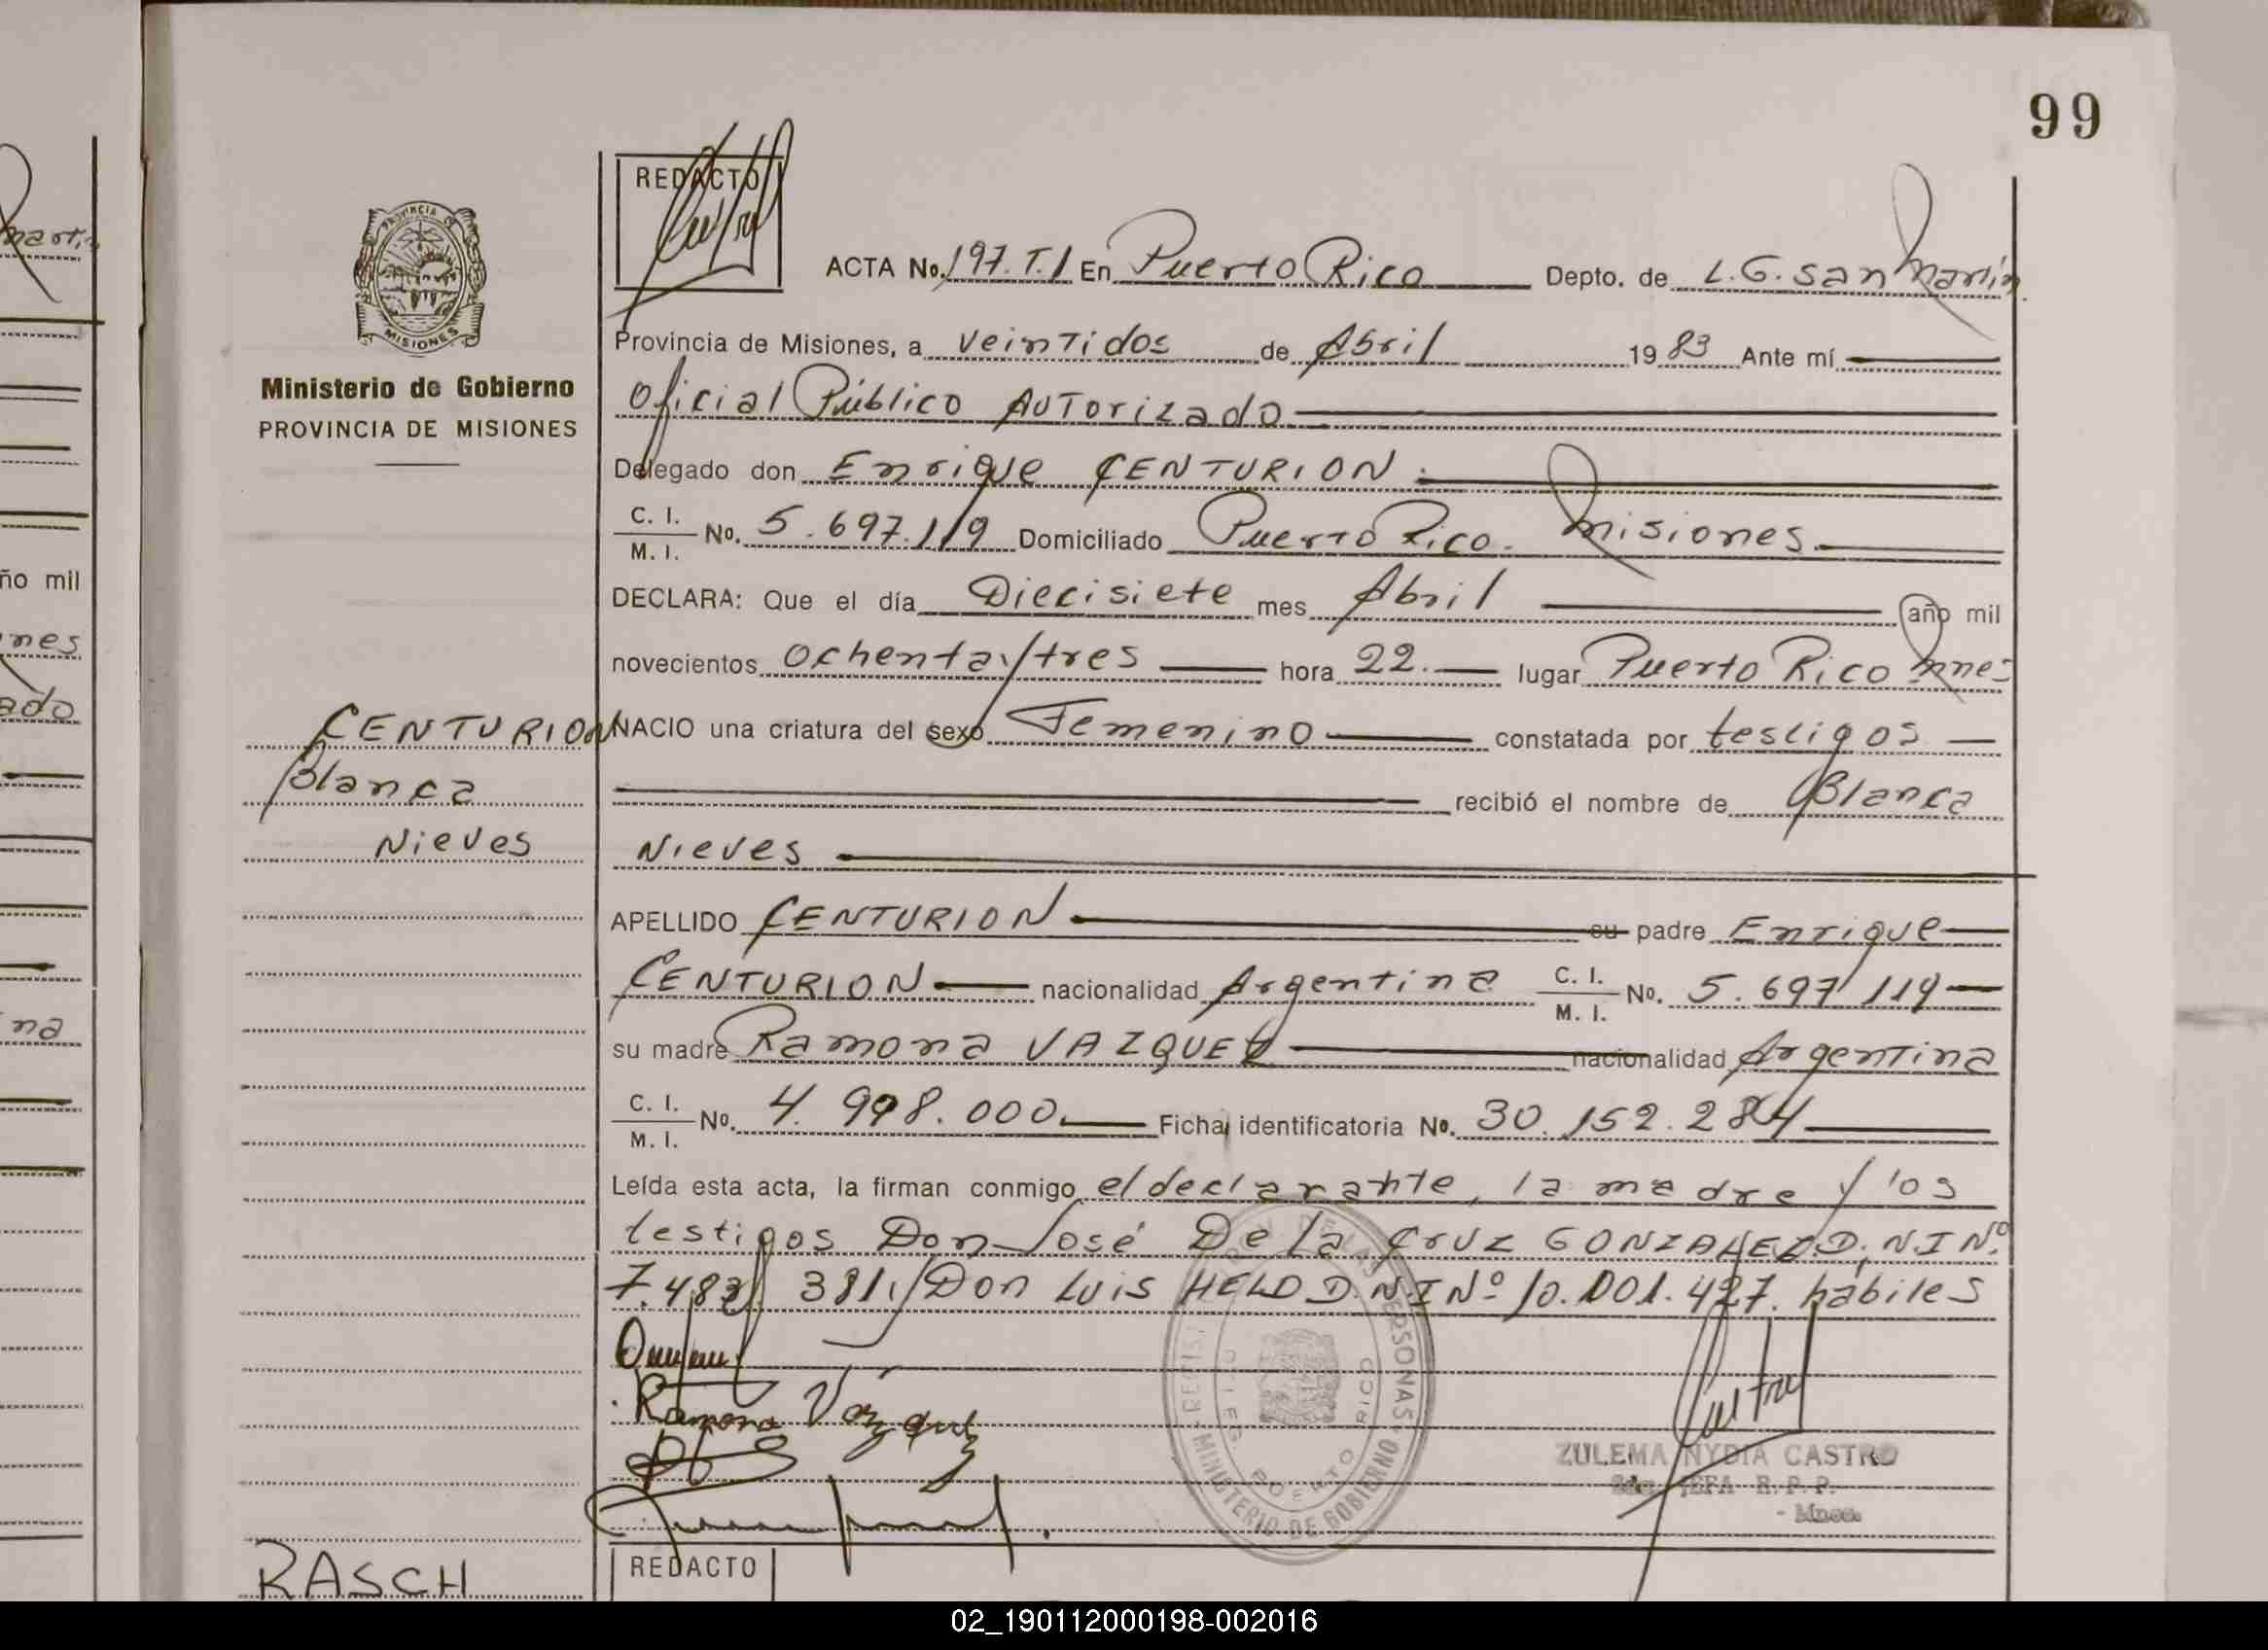 99
REDACTO
ACTA No. 197. T. 1 En Puerto Rico Depto. de L. G. San Martin
Provincia de Misiones, a veintidos de Abril 1983 Ante mí
Oficial Público Autorizado
Delegado don Enrique CENTURION
C. I. M. I. No. 5.697.119 Domiciliado Puerto Rico. Misiones.
DECLARA: Que el día Diecisiete mes Abril año mil
novecientos ochenta y tres hora 22. lugar Puerto Rico Mnes
NACIO una criatura del sexo Femenino constatada por testigos
recibió el nombre de Blanca
Nieves
APELLIDO CENTURION su padre Enrique
CENTURION nacionalidad Argentina C. I. M. I. No. 5.697.119
su madre Ramona VAZQUEZ nacionalidad Argentina
C. I. M. I. No. 4.998.000 Ficha identificatoria No. 30.152.284
Leída esta acta, la firman conmigo el declarante, la madre y los
testigos Don José De la Cruz GONZALEZ D.N.I Nº
7.483.381 y Don Luis HELD D.N.I Nº 10.001.427. hábiles
Ramona Vázquez
Castro
ZULEMA NYDIA CASTRO
JEFA R. P. P.
- Mnes.
PROVINCIA DE MISIONES
Ministerio de Gobierno
PROVINCIA DE MISIONES
CENTURION
Blanca
Nieves
RASCH
REDACTO
PERSONAS
MINISTERIO DE GOBIERNO
PUERTO RICO
martin
ño mil
nes
ado
na
02_190112000198-002016